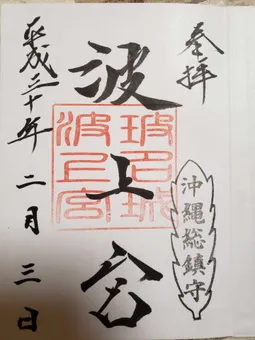 奉拝
沖縄総鎮守
波上宮
波上宮
平成三十年二月三日